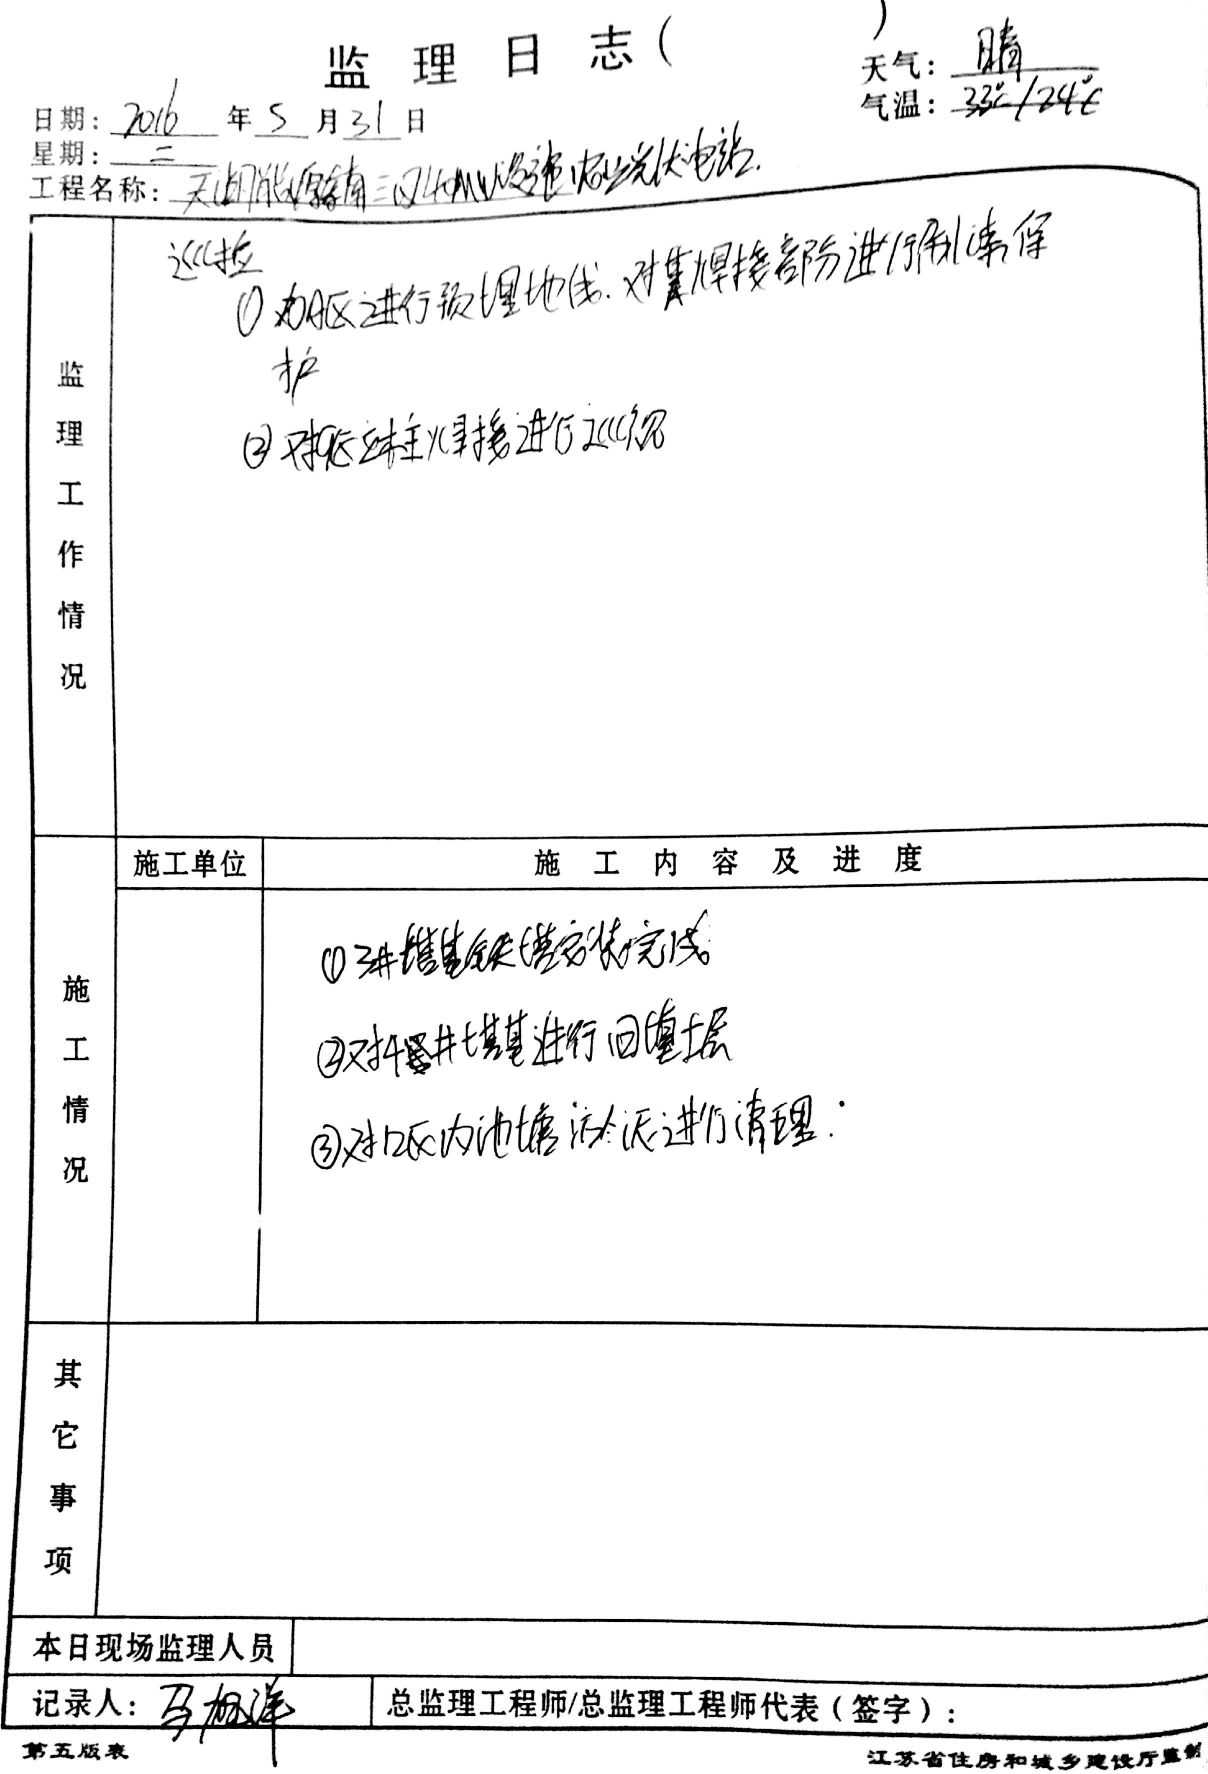 监理日志( )
天气: 晴
气温: 33℃/24℃
日期: 2016 年 5 月 31 日
星期: 二
工程名称: 农业光伏电站.
监理工作情况
巡检
① 对A区进行预埋地线.对焊接部分进行刷漆保
护
② 对 区立柱焊接进行巡视
施工单位
施工内容及进度
施工情况
① 3#塔基铁塔安装完成
② 对4#塔基进行回填土层
③ 对 区内池塘淤泥进行清理.
其它事项
本日现场监理人员
记录人: 马 洋
总监理工程师/总监理工程师代表(签字):
第五版表
江苏省住房和城乡建设厅监制